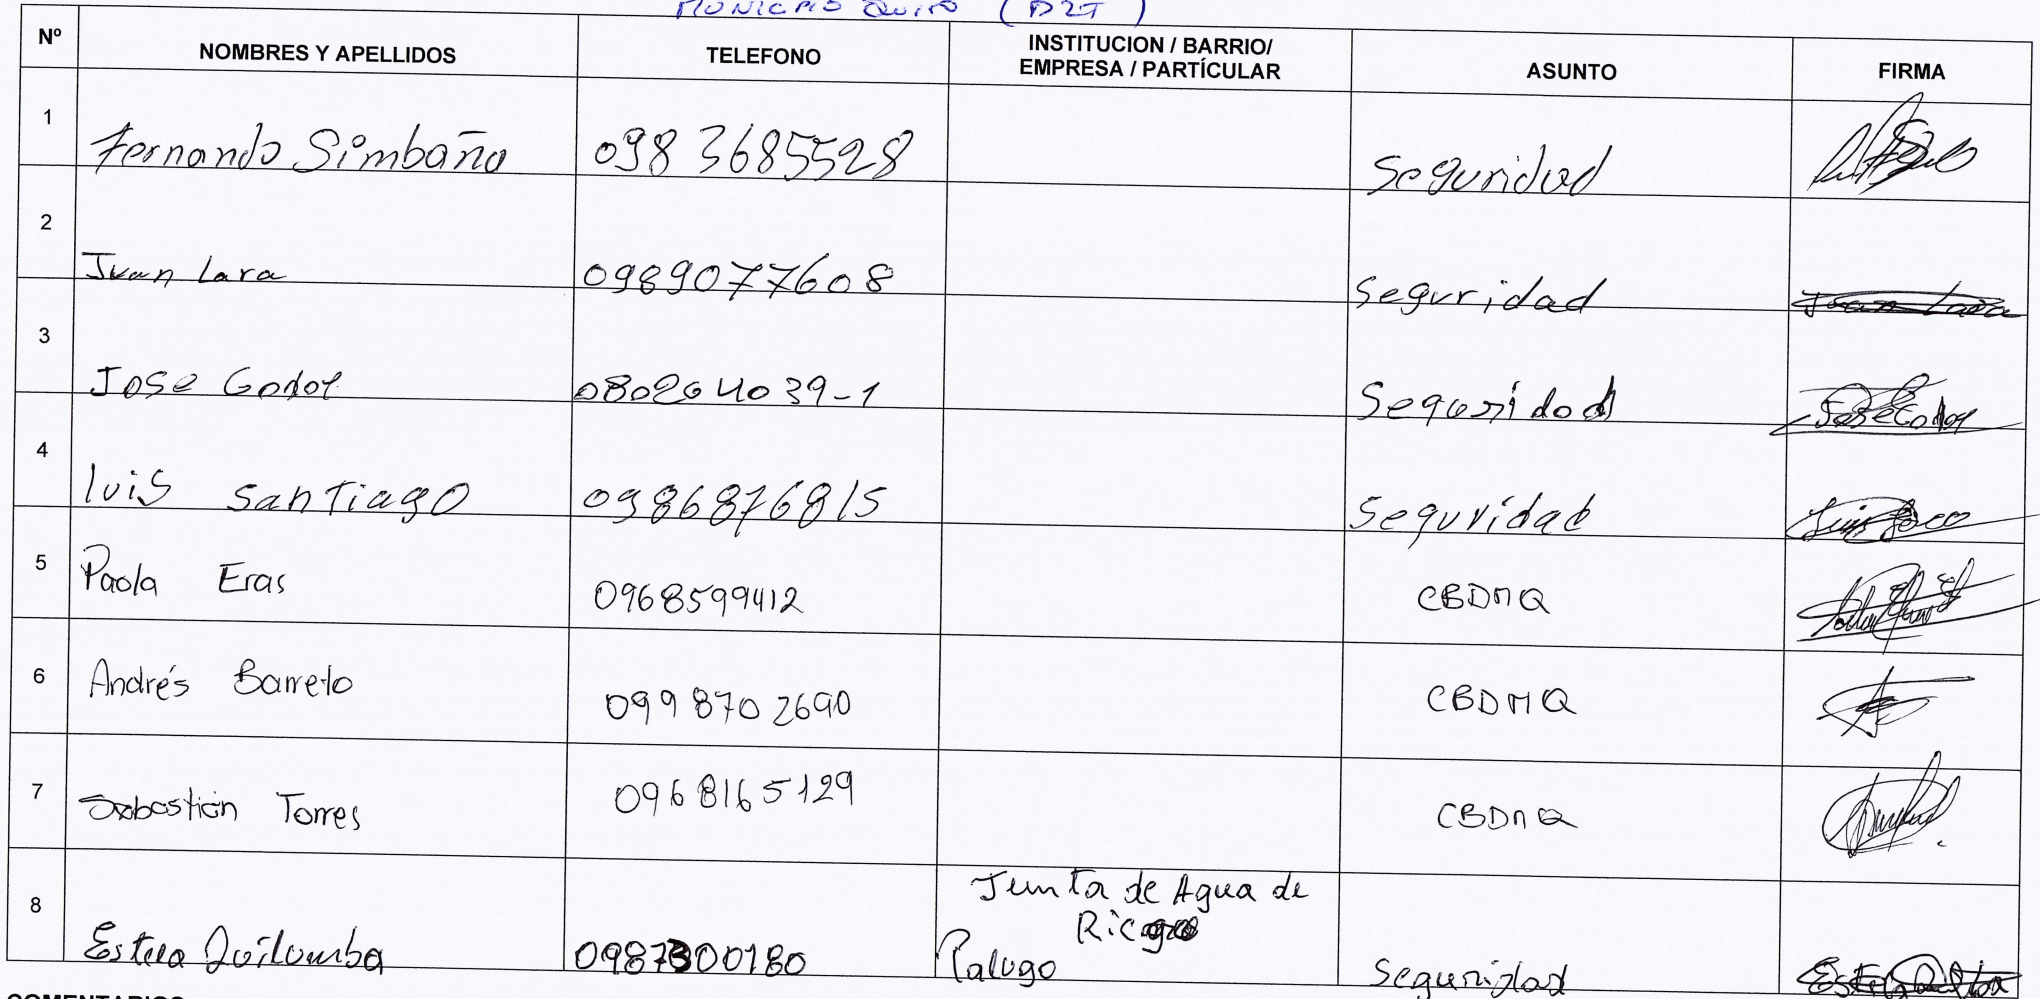 MUNICIPIO QUITO (DZT)
Nº NOMBRES Y APELLIDOS TELEFONO INSTITUCION / BARRIO/ EMPRESA / PARTÍCULAR ASUNTO FIRMA
1 Fernando Simbaña 098 3685528 Seguridad
2 Juan Lara 0989077608 Seguridad Juan Lara
3 Jose Godoy 080204039-1 Seguridad Jose Godoy
4 luis santiago 0986876815 Seguridad
5 Paola Eras 0968599412 CBDMQ
6 Andrés Barreto 099 870 2690 CBDMQ
7 Sebastián Torres 0968165129 CBDMQ
Junta de Agua de
Riego
8 Estela Quilumba 0987300180 Palugo Seguridad
COMENTARIOS